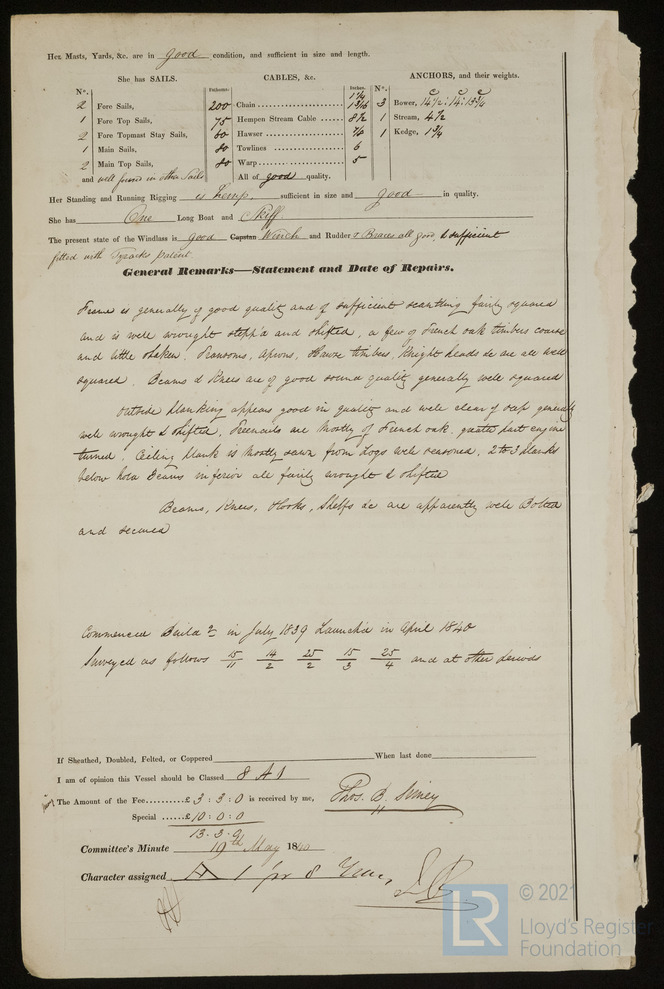 Her Masts, Yards, &c. are in good condition, and sufficient in size and length.
She has SAILS. CABLES, &c. ANCHORS, and their weights.
N°. Fathoms. Inches. N°.
2 Fore Sails, 200 Chain 1 3/16 3 Bower, 14½ : 14 : 13¾
1 Fore Top Sails, 75 Hempen Stream Cable 8½ 1 Stream, 4½
2 Fore Topmast Stay Sails, 60 Hawser 1 Kedge, 1¾
1 Main Sails, 80 Towlines 6
2 Main Top Sails, 80 Warp 5
and well found in other Sails All of good quality.
Her Standing and Running Rigging is hemp, sufficient in size and good in quality.
She has One Long Boat and Skiff
The present state of the Windlass is good Capstan Winch and Rudder & Braces all good & sufficient
fitted with Tyzacks patent
General Remarks—Statement and Date of Repairs.
Frame is generally of good quality and of sufficient scantling fairly squared
and is well wrought stepp'd and shifted, a few of French oak timbers coarse
and little shaken. Transoms, Aprons, Hawse timbers, Knight heads &c are all well
squared. Beams & Knees are of good sound quality generally well squared
Outside Planking appears good in quality and well clear of sap generally
well wrought & shifted, Treenails are Mostly of French oak. greater part engine
turned. Ceiling plank is Mostly sawn from Logs well seasoned, 2 to 3 planks
below hold Beams inferior all fairly wrought & shifted
Beams, Knees, Hooks, Shelfs &c are apparently well Bolted
and secured
Commenced Build g in July 1839 Launch'd in April 1840
Surveyed as follows 15/11 14/2 25/2 15/3 25/4 and at other periods
If Sheathed, Doubled, Felted, or Coppered When last done
I am of opinion this Vessel should be Classed 8 A 1
The Amount of the Fee £ 3 : 3 : 0 is received by me, Thos. B. Simey
Special £ 10 : 0 : 0
13. 3. 0
Committee's Minute 19th May 1840
Character assigned A 1 for 8 Years,
© 2021
LR Lloyd's Register
Foundation